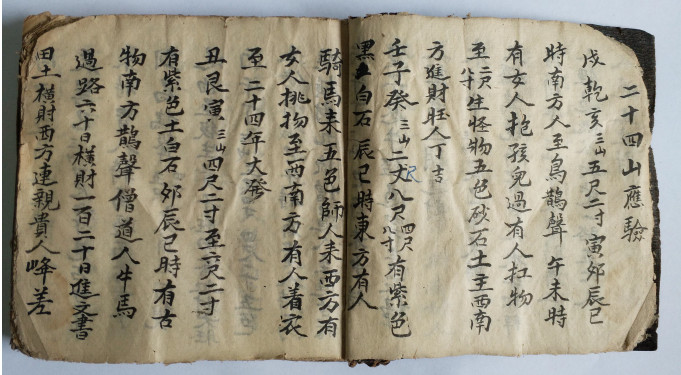 二十四山應驗
戌乾亥三山五尺二寸寅夘辰巳
時南方人至鳥鵲聲午未時
有女人抱孩兒過有人扛物
至一丈八十生怪物五色砂石土主西南
方進財旺人丁吉
壬子癸三山二丈八尺四尺八寸有紫色
黑白石辰巳時東方有人
騎馬來五色師人來西方有
女人挑物至西南方有人着衣
至二十四年大發
丑艮寅三山四尺二寸至六尺二寸
有紫色土白石夘辰巳時有古
物南方鵲聲僧道人牛馬
過路六十日橫財一百二十日進文書
田土橫財西方連親貴人峰差